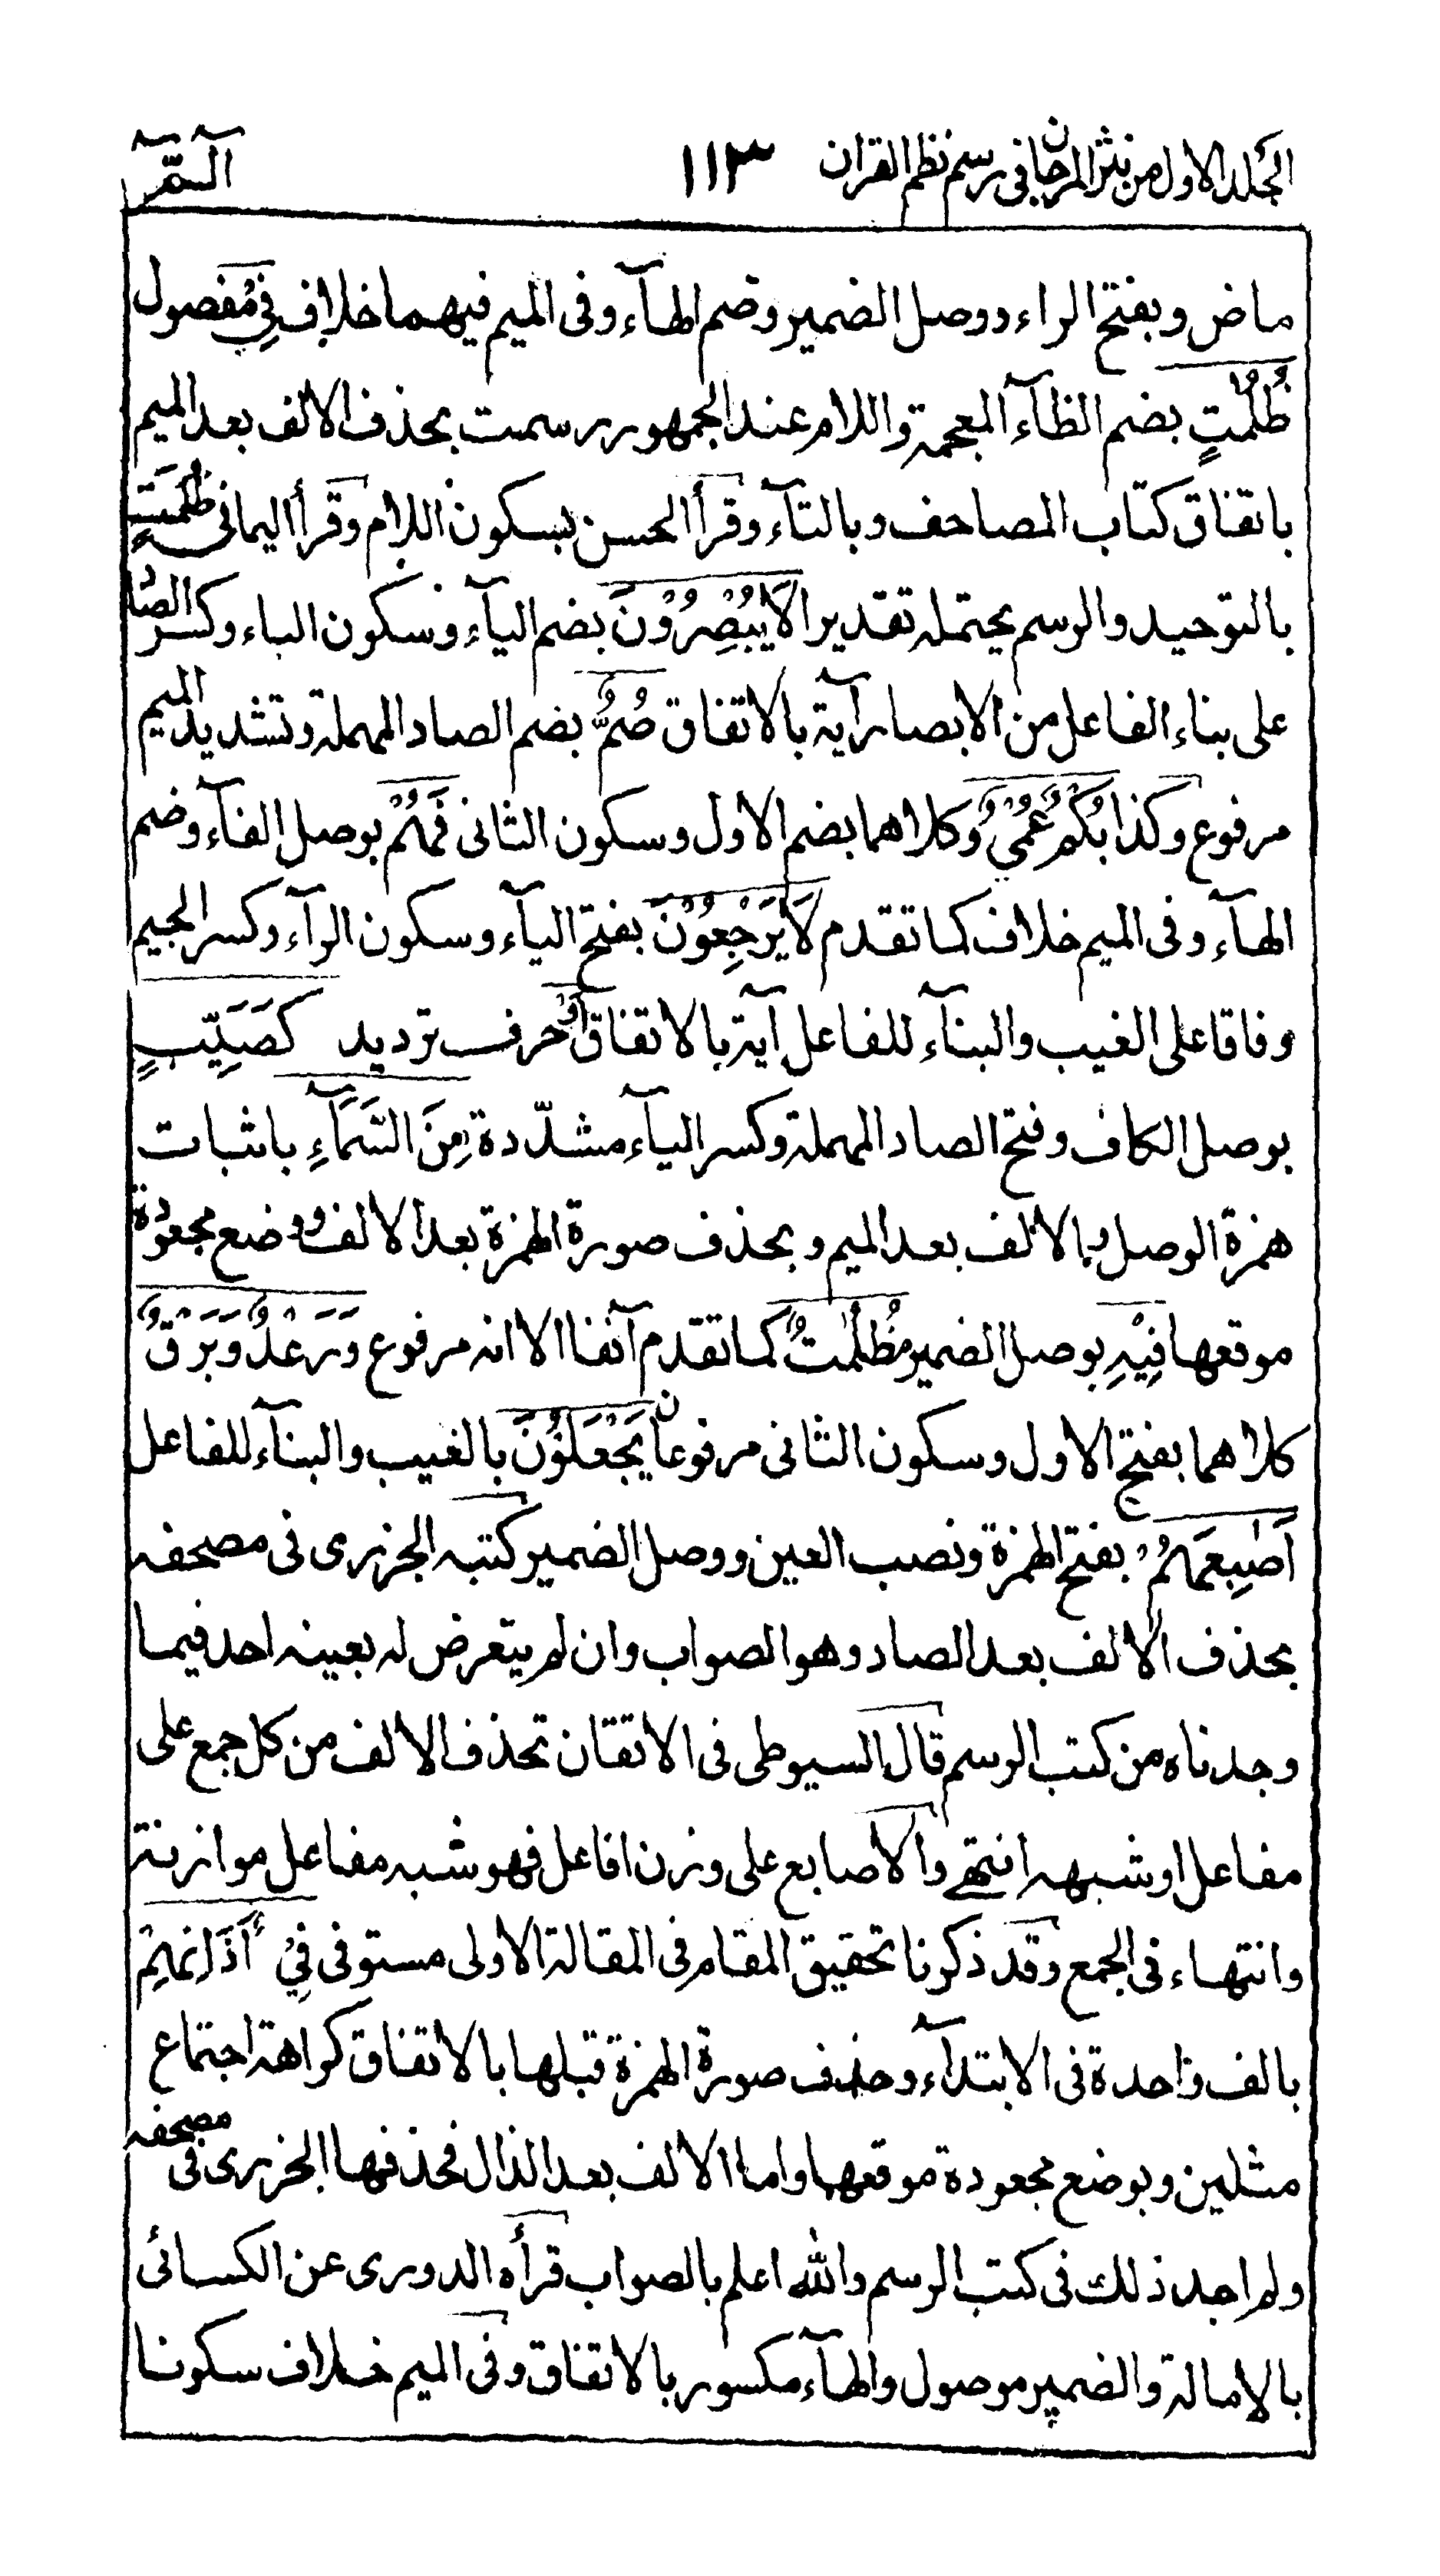 الجلد الاول من نثر المرجان فی رسم نظم القران ١١٣ الٓمّٓ
ماض وبفتح الراء ووصل الضمير وضم الهآء وفى الميم فيهما خلاف فِي مفصول
ظُلُمٰتٍ بضم الظآء المعجمة واللام عند الجمهور رسمت بحذف الالف بعد الميم
باتفاق كتّاب المصاحف وبالتآء وقرأ الحسن بسكون اللام وقرأ اليمانى ظُلْمَتٍ
بالتوحيد والرسم يحتمله تقديرا لَايُبْصِرُوْنَ بضم اليآء وسكون الباء وكسر الصاد
على بناء الفاعل من الابصار آية بالاتفاق صُمٌّ بضم الصاد المهملة وتشديد الميم
مرفوع وكذا بُكْمٌ عُمْيٌ وكلاهما بضم الاول وسكون الثانى فَهُمْ بوصل الفآء وضم
الهآء وفى الميم خلاف كما تقدم لَايَرْجِعُوْنَ بفتح اليآء وسكون الرآء وكسر الجيم
وفاقا على الغيب والبنآء للفاعل آية بالاتفاق اَوْ حرف ترديد كَصَيِّبٍ
بوصل الكاف وفتح الصاد المهملة وكسر اليآء مشدّدة مِنَ السَّمَآءِ باثبات
همزة الوصل وبالالف بعد الميم وبحذف صورة الهمزة بعد الالف ووضع مجعودة
موقعها فِيْهِ بوصل الضمير ظُلُمٰتٌ كما تقدم آنفا الا انه مرفوع وَرَعْدٌ وَبَرْقٌ
كلاهما بفتح الاول وسكون الثانى مرفوعان يَجْعَلُوْنَ بالغيب والبنآء للفاعل
اَصٰبِعَهُمْ بفتح الهمزة ونصب العين ووصل الضمير كتبه الجزرى فى مصحفه
بحذف الالف بعد الصاد وهو الصواب وان لم يتعرض له بعينه احد فيما
وجدناه من كتب الرسم قال السيوطى فى الاتقان تحذف الالف من كل جمع على
مفاعل او شبهه انتهى والاصابع على وزن افاعل فهو شبه مفاعل موازنة
وانتهاء فى الجمع وقد ذكرنا تحقيق المقام فى المقالة الاولى مستوفى فِيْ اٰذَانِهِمْ
بالف واحدة فى الابتدآء وحذف صورة الهمزة قبلها بالاتفاق كراهة اجتماع
مثلين وبوضع مجعودة موقعها واما الالف بعد الذال فحذفها الجزرى فى مصحفه
ولم اجد ذلك فى كتب الرسم والله اعلم بالصواب قرأه الدورى عن الكسائى
بالامالة والضمير موصول والهآء مكسور بالاتفاق وفى الميم خلاف سكونا